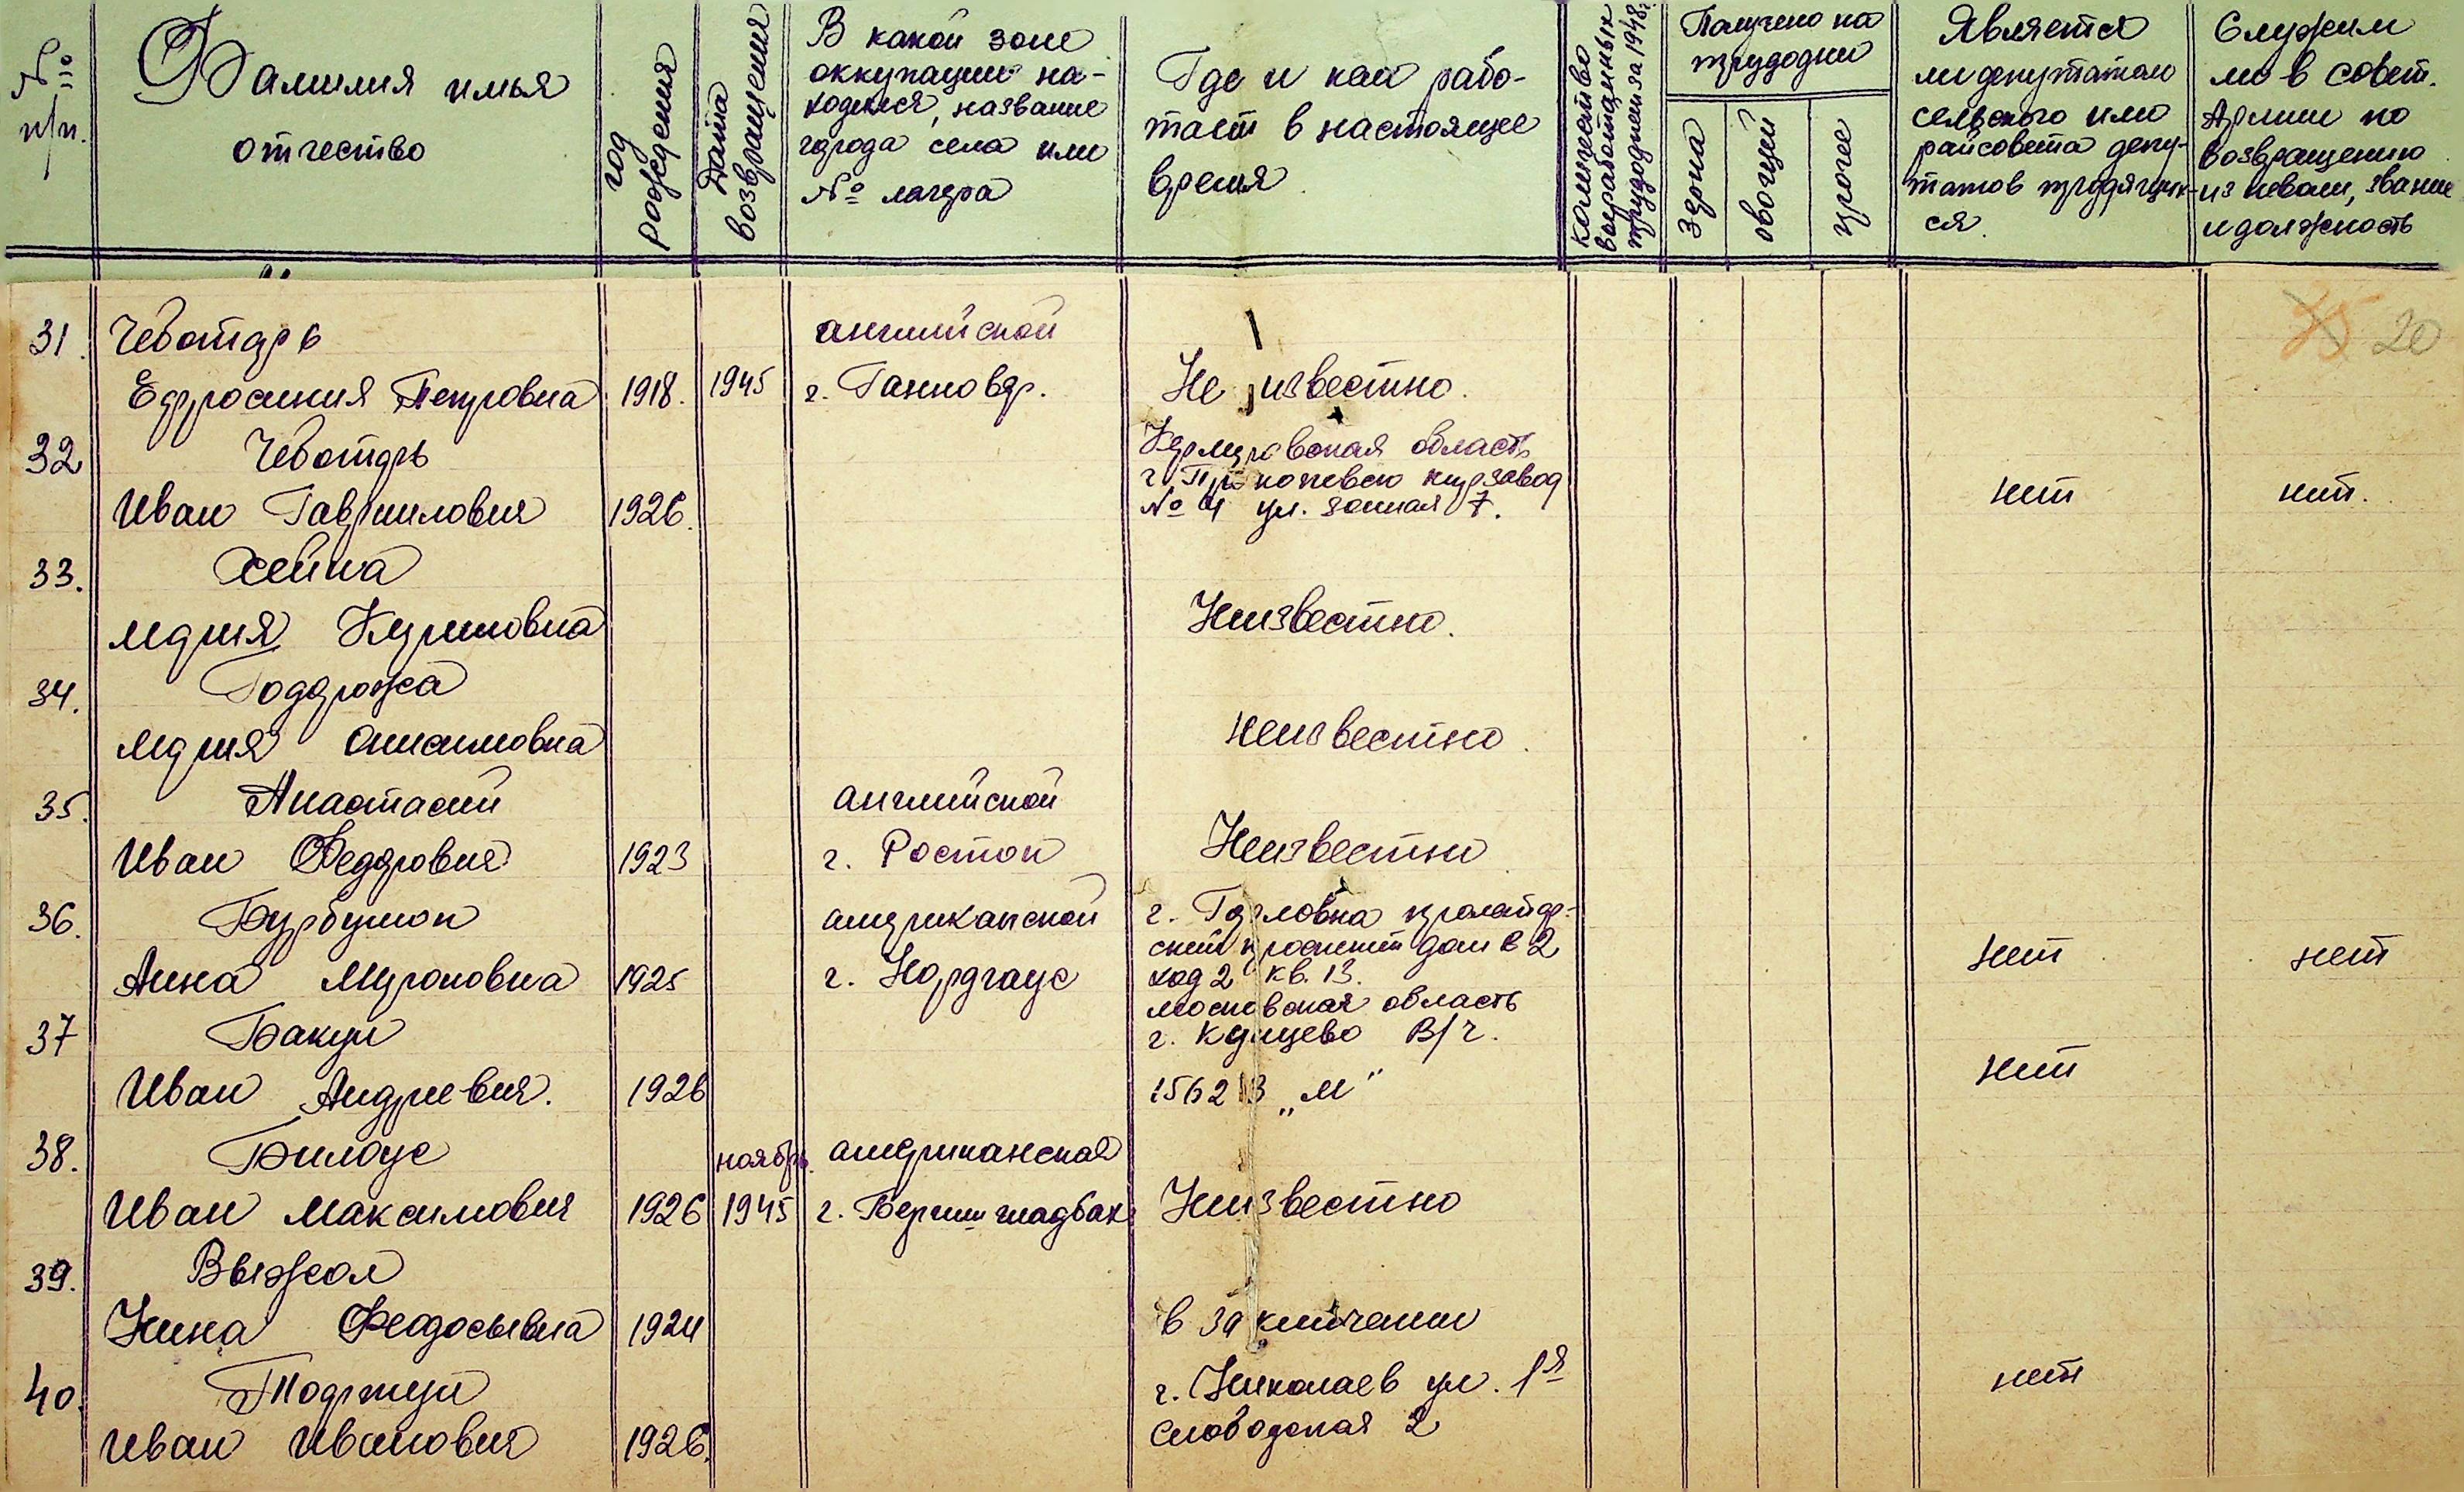 № п/п.
Фамилия имья отчество
год рождения
Дата возвращения
В какой зоне оккупации находился, название города села или № лагеря
Где и кем работает в настоящее время
количество выработанных трудодней за 1948г.
Получено на трудодни
зерна
овощей
прочее
Является ли депутатом сельского или райсовета депутатов трудящихся.
Служил ли в совет. Армии по возвращению из неволи, звание и должность
35 20
31. Чеботарь английской
Ефросиния Петровна 1918. 1945 г. Ганновер. Не известно.
32 Чеботарь Кемеровская область
г. Прокопевско кирзавод
Иван Гаврилович 1926. № 4 ул. Зонная 7. нет нет.
33. Хейна
Мария Кириловна Неизвестно.
34.
Мария Онисимовна неизвестно.
35. Анастасий английской
Иван Федорович 1923 г. Росток Неизвестно
36. Бурбушон американской г. Горловка
ский проспект дом 2
Анна Мироновна 1925 г. Нордгаус ход 2 кв. 13. нет нет
московская область
37 Бакун г. Кунцево В/ч.
Иван Андреевич. 1926 15621В „М" нет
38. Билоус ноябрь. американская
Иван Максимович 1926 1945 г. Неизвестно
39. Выжол
Нина Феодосьевна 1924 в заключении
40. г. Николаев ул. 1я нет
Иван Иванович 1926. Слободская 2